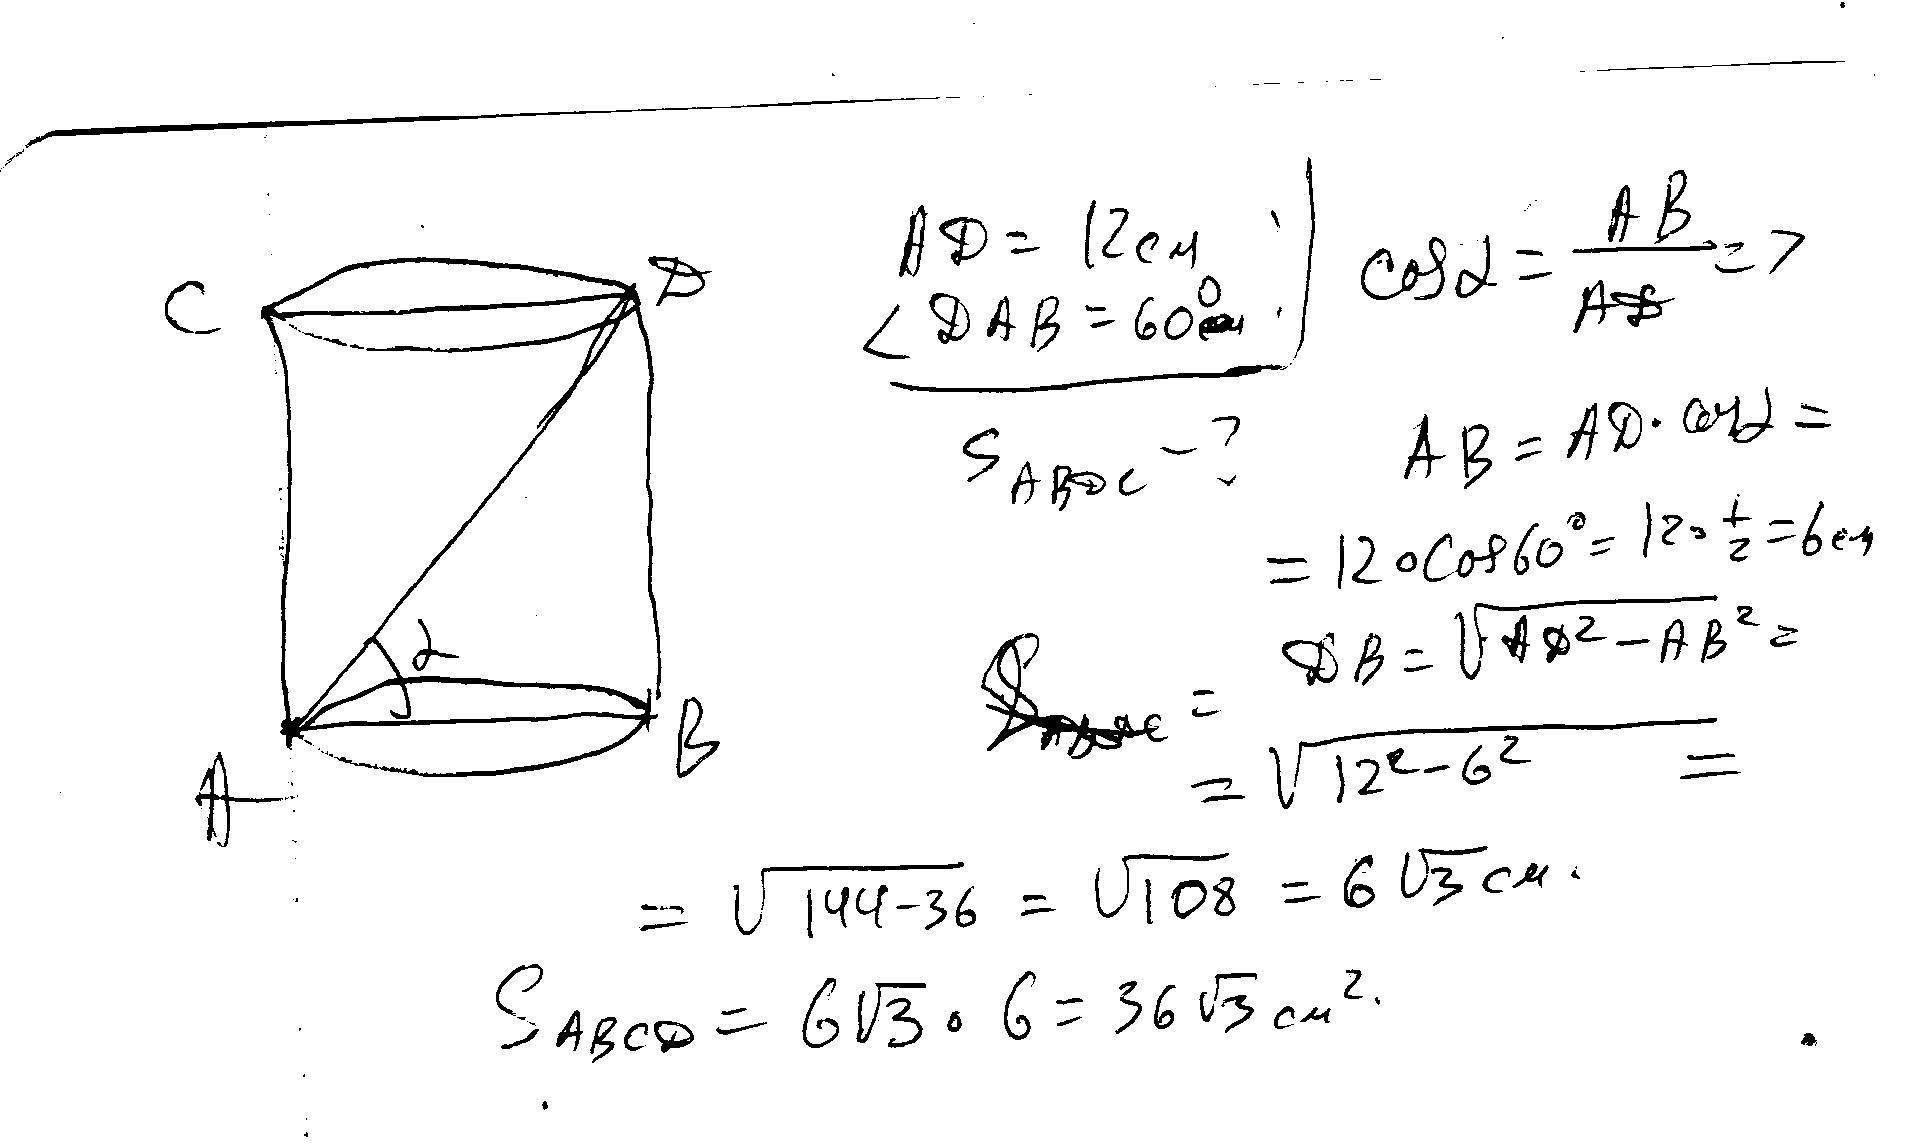 C
D
A
B
α
AD = 12 см
∠ DAB = 60°
S ABDC - ?
cos α = AB / AD =>
AB = AD · cos α =
= 12 · cos 60° = 12 · 1/2 = 6 см
DB = √AD² - AB² =
= √12² - 6² =
= √144-36 = √108 = 6√3 см.
S ABCD = 6√3 · 6 = 36√3 см².